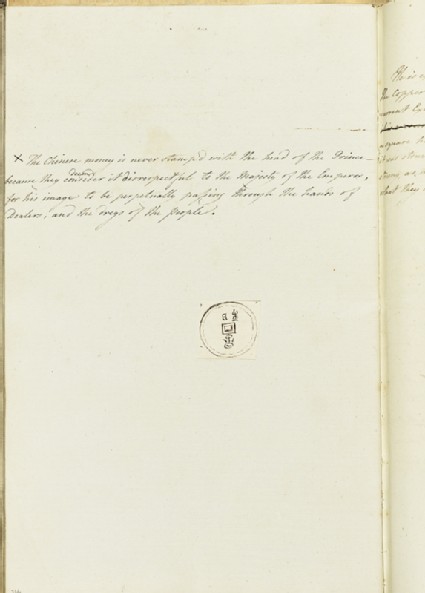 x The Chinese money is never stamped with the head of the Prince
because they consider it disrespectful to the Majesty of the Emperor,
for his image to be perpetually passing through the hands of
Dealers, and the dregs of the people.
This is
the Copper